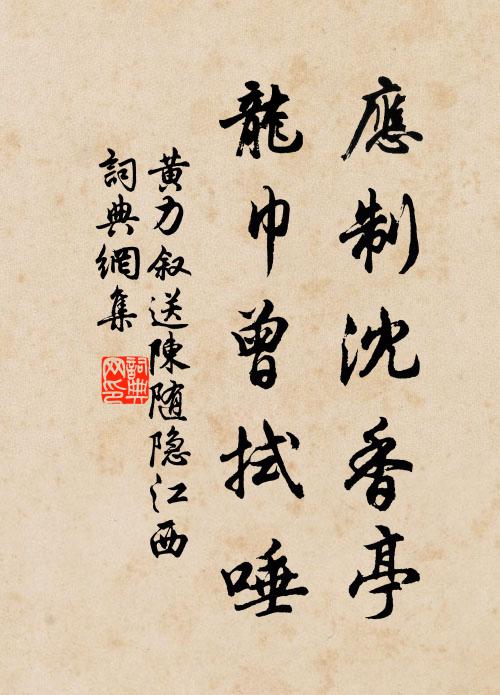 應制沈香亭
龍巾曾拭唾
黄力叙送陳随隐江西
詞典網集
詞典网印